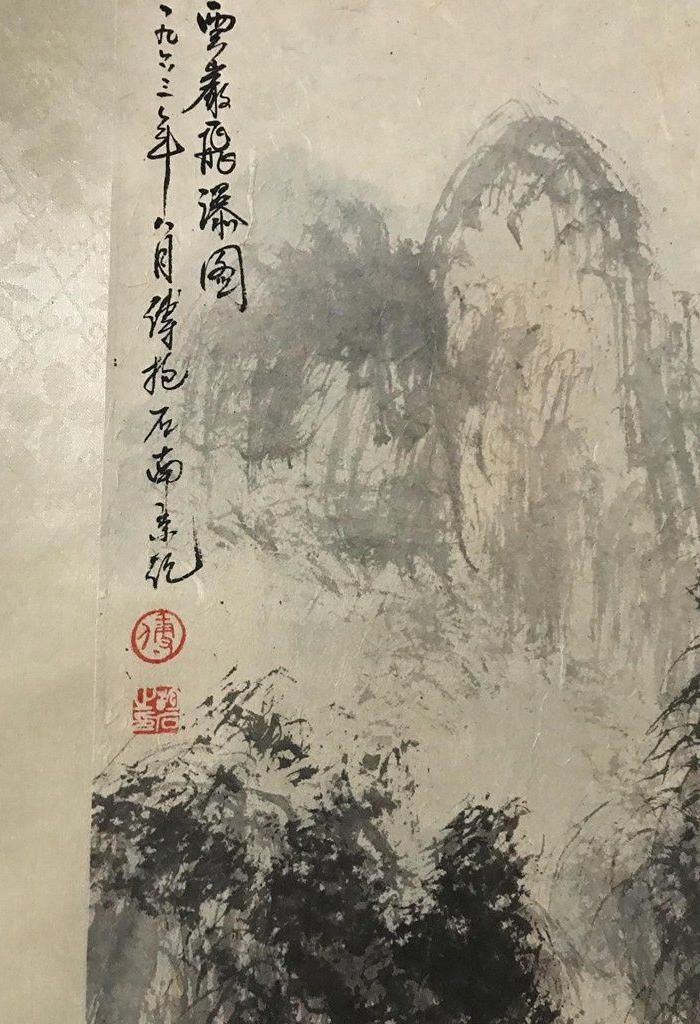 雲巖飛瀑图
一九六三年八月傅抱石南京記
傅
抱石之印